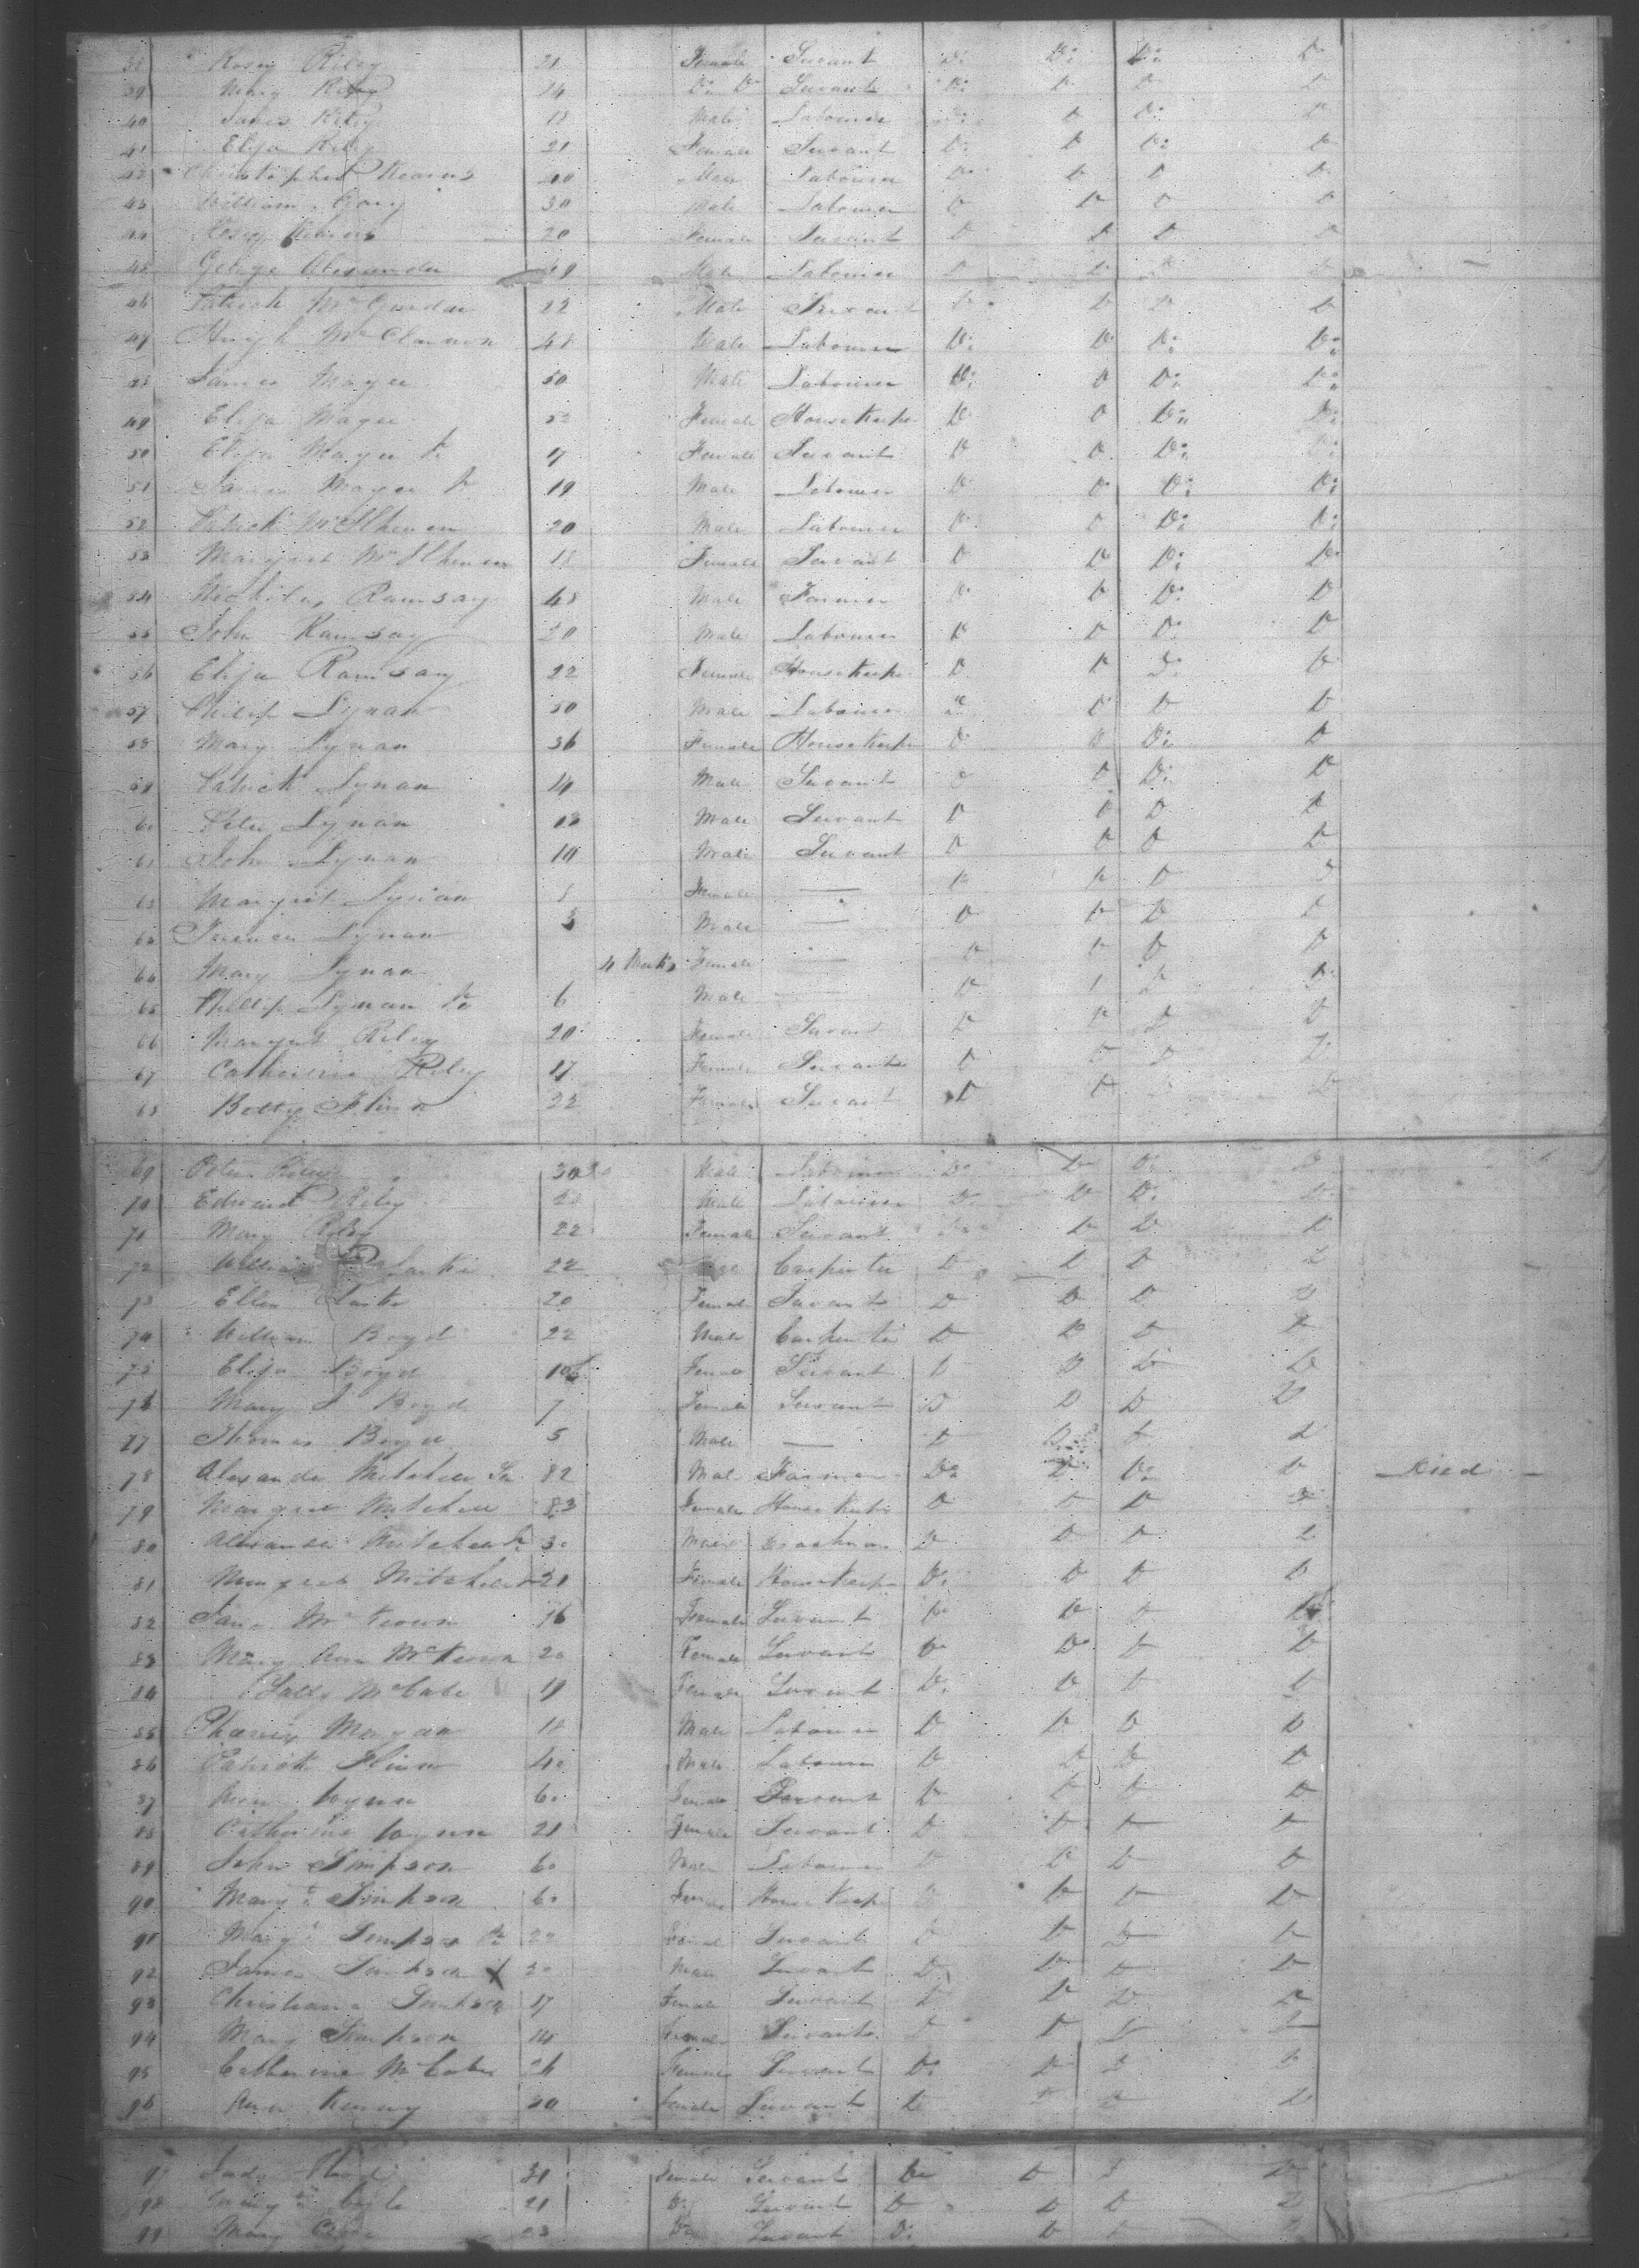 38 Rosey Riley 21 Female Servant Do Do Do Do
39 Mary Riley 14 Do Do Servant Do Do Do Do
40 James Riley 18 Male Labourer Do Do Do Do
41 Eliza Riley 21 Female Servant Do Do Do Do
42 Christopher Kearns 20 Male Labourer Do Do Do Do
43 William Gary 30 Male Labourer Do Do Do Do
44 Rosey 20 Female Servant Do Do Do Do
45 George Alexander 49 Male Labourer Do Do Do Do
46 Patrick Mc 22 Male Servant Do Do Do Do
47 Hugh McClannon 48 Male Labourer Do Do Do Do
48 James Magee 50 Male Labourer Do Do Do Do
49 Eliza Magee 52 Female House Keeper Do Do Do Do
50 Eliza Magee Jr 17 Female Servant Do Do Do Do
51 James Magee Jr 19 Male Labourer Do Do Do Do
52 Patrick McIlhenen 20 Male Labourer Do Do Do Do
53 Margret McIlhenen 18 Female Servant Do Do Do Do
54 Ramsay 48 Male Farmer Do Do Do Do
55 John Ramsay 20 Male Labourer Do Do Do Do
56 Eliza Ramsay 22 Female House Keeper Do Do Do Do
57 Philip Lynan 50 Male Labourer Do Do Do Do
58 Mary Lynan 36 Female House Keeper Do Do Do Do
59 Patrick Lynan 14 Male Servant Do Do Do Do
60 Peter Lynan 13 Male Servant Do Do Do Do
61 John Lynan 10 Male Servant Do Do Do Do
62 Margret Lynan 8 Female — Do Do Do Do
63 Lynan 3 Male — Do Do Do Do
64 Mary Lynan 4 Weeks Female — Do Do Do Do
65 Phillip Lynan Jr 6 Male — Do Do Do Do
66 Margret Riley 20 Female Servant Do Do Do Do
67 Catherine Riley 17 Female Servant Do Do Do Do
68 Betty Flinn 22 Female Servant Do Do Do Do
69 Peter Riley 30 Male Labourer Do Do Do Do
70 Edward Riley Male Labourer Do Do Do Do
71 Mary Riley 22 Female Servant Do Do Do Do
72 William Clarke 22 Male Carpenter Do Do Do Do
73 Ellen Clarke 20 Female Servant Do Do Do Do
74 William Boyd 22 Male Carpenter Do Do Do Do
75 Eliza Boyd Female Servant Do Do Do Do
76 Mary J Boyd 7 Female Servant Do Do Do Do
77 Thomas Boyd 5 Male — Do Do Do Do
78 Alexander Mitchell Sr 82 Male Farmer Do Do Do Do Died
79 Margret Mitchell 83 Female House Keeper Do Do Do Do
80 Alexander Mitchell Jr 30 Male Do Do Do Do
81 Margret Mitchell 21 Female House Keeper Do Do Do Do
82 Jane McKeown 16 Female Servant Do Do Do Do
83 Mary Ann McKeown 20 Female Servant Do Do Do Do
84 Sally McCabe 19 Female Servant Do Do Do Do
85 Magan 18 Male Labourer Do Do Do Do
86 Patrick Flinn 40 Male Labourer Do Do Do Do
87 Wynn 60 Female Servant Do Do Do Do
88 Catherine Wynn 21 Female Servant Do Do Do Do
89 John Simpson 60 Male Labourer Do Do Do Do
90 Margt Simpson 60 Female House Keeper Do Do Do Do
91 Margt Simpson Jr 22 Female Servant Do Do Do Do
92 James X 20 Male Servant Do Do Do Do
93 Christiana Simpson 17 Female Servant Do Do Do Do
94 Mary Simpson 14 Female Servant Do Do Do Do
95 Catherine McCabe 26 Female Servant Do Do Do Do
96 Ann Kenny 20 Female Servant Do Do Do Do
97 31 Female Servant Do Do Do Do
98 21 Do Servant Do Do Do Do
99 Mary 23 Do Servant Do Do Do Do